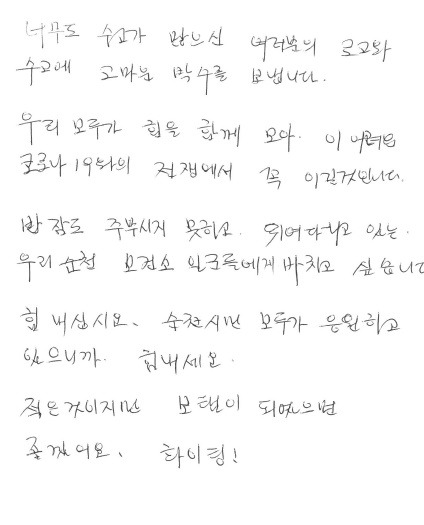 너무도 수고가 많으신 여러분의 로고와
수고에 고마운 박수를 보냅니다.
우리 모두가 힘을 함께 모아. 이 어려운
코로나19와의 전쟁에서 꼭 이길것입니다.
밤잠도 주무시지 못하고. 뛰어다니고 있는.
우리 순천 보건소 일꾼들에게 바치고 싶습니다
힘 내십시오. 순천시민 모두가 응원하고
있으니까. 힘내세요.
적은것이지만 보탬이 되었으면
좋겠어요. 화이팅!